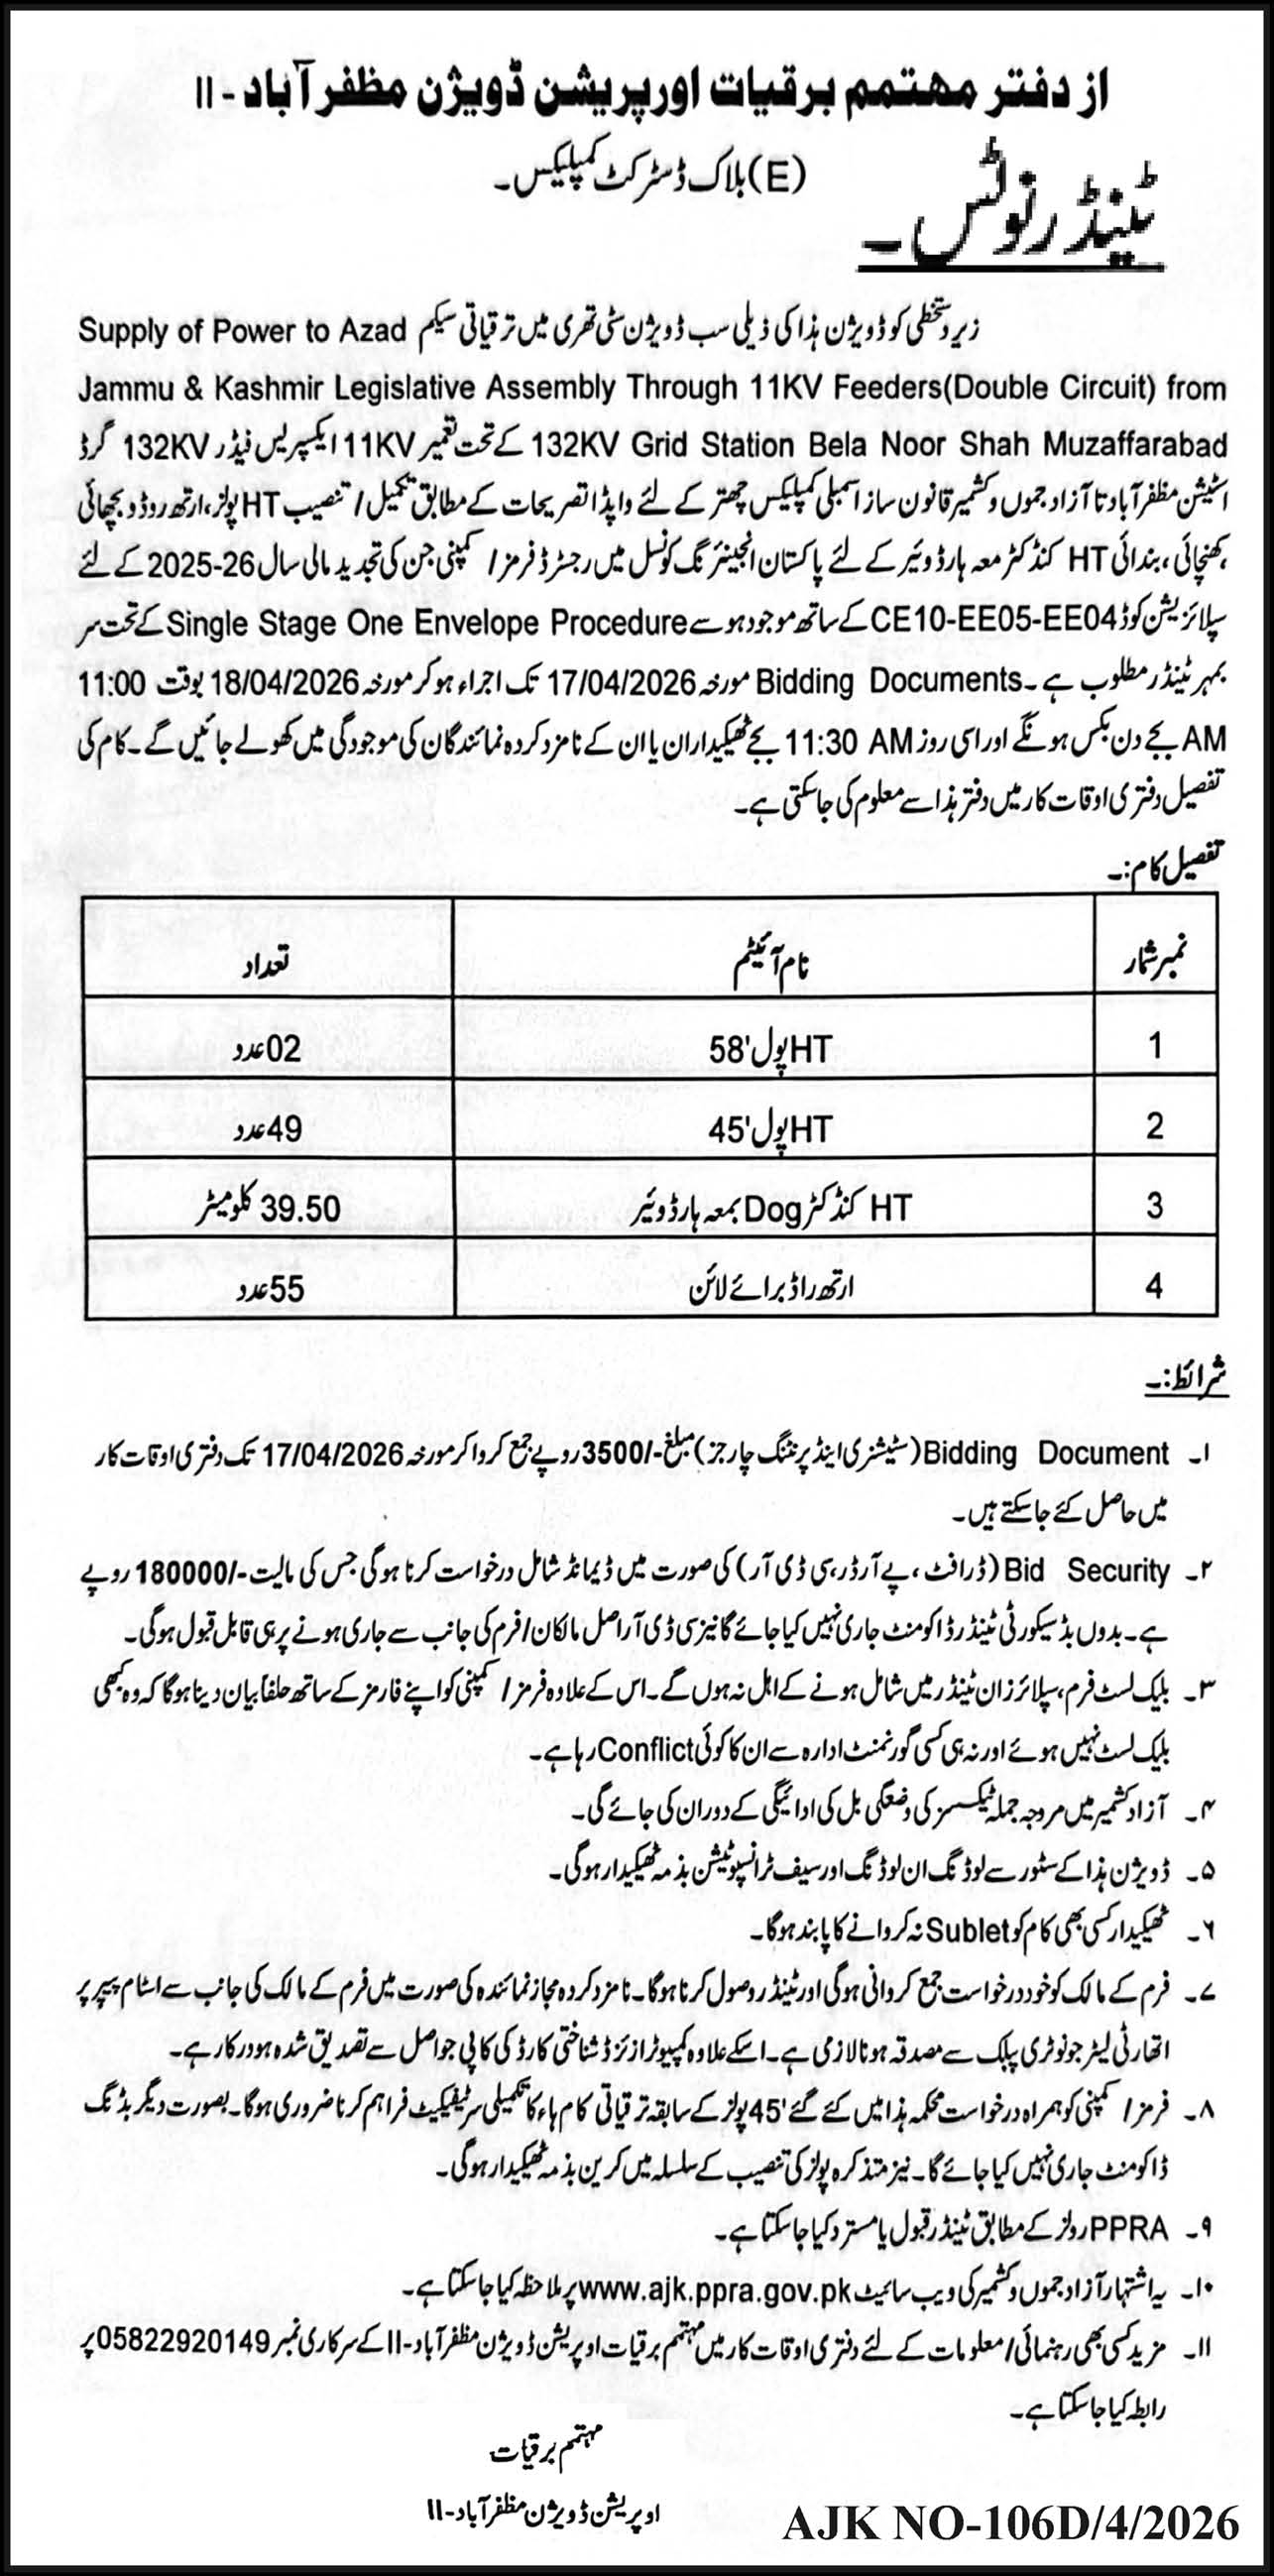 از دفتر مہتمم برقیات اورپریشن ڈویژن مظفرآباد - II
(E) بلاک ڈسٹرکٹ کمپلیکس۔
ٹینڈر نوٹس ۔
زیر دستخطی کو ڈویژن ہذا کی ذیلی سب ڈویژن سٹی تھری میں ترقیاتی سکیم Supply of Power to Azad
Jammu & Kashmir Legislative Assembly Through 11KV Feeders(Double Circuit) from
132KV Grid Station Bela Noor Shah Muzaffarabad کے تحت تعمیر 11KV ایکسپریس فیڈر 132KV گرڈ
اسٹیشن مظفرآباد تا آزاد جموں و کشمیر قانون ساز اسمبلی کمپلیکس چھتر کے لئے واپڈا تصریحات کے مطابق تکمیل / تنصیب HT پولز، ارتھ روڈ و بچھائی
،کھنچائی، بندائی HT کنڈکٹر معہ ہارڈوئیر کے لئے پاکستان انجینئرنگ کونسل میں رجسٹرڈ فرمز / کمپنی جن کی تجدید مالی سال 26-2025 کے لئے
سپلائزیشن کوڈ CE10-EE05-EE04 کے ساتھ موجود ہو سے Single Stage One Envelope Procedure کے تحت سر
بمہر ٹینڈر مطلوب ہے ۔ Bidding Documents مورخہ 17/04/2026 تک اجراء ہو کر مورخہ 18/04/2026 بوقت 11:00
AM بجے دن بکس ہونگے اور اسی روز 11:30 AM بجے ٹھیکیداران یا ان کے نامزد کردہ نمائندگان کی موجودگی میں کھولے جائیں گے ۔ کام کی
تفصیل دفتری اوقات کار میں دفتر ہذا سے معلوم کی جا سکتی ہے۔
تفصیل کام:۔
نمبر شمار نام آئیٹم تعداد
1 HT پول '58 02 عدد
2 HT پول '45 49 عدد
3 HT کنڈکٹر Dog بمعہ ہارڈوئیر 39.50 کلومیٹر
4 ارتھ راڈ برائے لائن 55 عدد
شرائط:۔
۱۔ Bidding Document (سٹیشنری اینڈ پرنٹنگ چارجز) مبلغ -/3500 روپے جمع کروا کر مورخہ 17/04/2026 تک دفتری اوقات کار
میں حاصل کئے جا سکتے ہیں۔
۲۔ Bid Security (ڈرافٹ، پے آرڈر، سی ڈی آر) کی صورت میں ڈیمانڈ شامل درخواست کرنا ہوگی جس کی مالیت -/180000 روپے
ہے۔ بدوں بڈ سیکورٹی ٹینڈر ڈاکومنٹ جاری نہیں کیا جائے گا نیز سی ڈی آر اصل مالکان/فرم کی جانب سے جاری ہونے پر ہی قابل قبول ہوگی۔
۳۔ بلیک لسٹ فرم، سپلائرز ان ٹینڈر میں شامل ہونے کے اہل نہ ہوں گے۔ اس کے علاوہ فرمز / کمپنی کو اپنے فارمز کے ساتھ حلفاً بیان دینا ہوگا کہ وہ کبھی
بلیک لسٹ نہیں ہوئے اور نہ ہی کسی گورنمنٹ ادارہ سے ان کا کوئی Conflict رہا ہے۔
۴۔ آزاد کشمیر میں مروجہ جملہ ٹیکسز کی وضعگی بل کی ادائیگی کے دوران کی جائے گی۔
۵۔ ڈویژن ہذا کے سٹور سے لوڈنگ ان لوڈنگ اور سیف ٹرانسپوٹیشن بذمہ ٹھیکیدار ہوگی۔
۶۔ ٹھیکیدار کسی بھی کام کو Sublet نہ کروانے کا پابند ہوگا۔
۷۔ فرم کے مالک کو خود درخواست جمع کروانی ہوگی اور ٹینڈر وصول کرنا ہوگا۔ نامزد کردہ مجاز نمائندہ کی صورت میں فرم کے مالک کی جانب سے اسٹام پیپر پر
اتھارٹی لیٹر جو نوٹری پبلک سے مصدقہ ہونا لازمی ہے۔ اسکے علاوہ کمپیوٹرائزڈ شناختی کارڈ کی کاپی جو اصل سے تصدیق شدہ ہو درکار ہے۔
۸۔ فرمز / کمپنی کو ہمراہ درخواست محکمہ ہذا میں کئے گئے '45 پولز کے سابقہ ترقیاتی کام ہاء کا تکمیلی سرٹیفکیٹ فراہم کرنا ضروری ہوگا۔ بصورت دیگر بڈنگ
ڈاکومنٹ جاری نہیں کیا جائے گا۔ نیز متذکرہ پولز کی تنصیب کے سلسلہ میں کرین بذمہ ٹھیکیدار ہوگی۔
۹۔ PPRA رولز کے مطابق ٹینڈر قبول یا مسترد کیا جا سکتا ہے۔
۱۰۔ یہ اشتہار آزاد جموں و کشمیر کی ویب سائیٹ www.ajk.ppra.gov.pk پر ملاحظہ کیا جا سکتا ہے۔
۱۱۔ مزید کسی بھی رہنمائی/معلومات کے لئے دفتری اوقات کار میں مہتمم برقیات اوپریشن ڈویژن مظفرآباد-II کے سرکاری نمبر 05822920149 پر
رابطہ کیا جا سکتا ہے۔
مہتمم برقیات
اوپریشن ڈویژن مظفرآباد-II
AJK NO-106D/4/2026